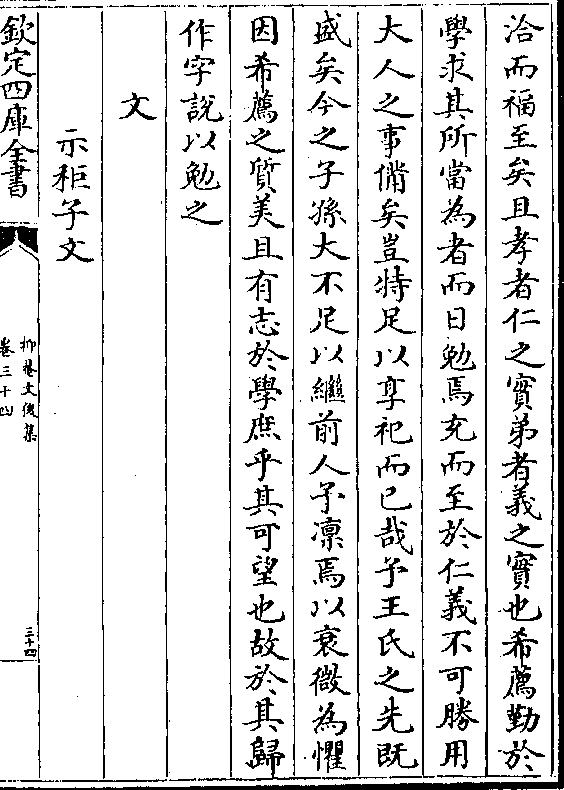 洽而福至矣且孝者仁之實弟者義之實也希薦勤於
學求其所當為者而日勉焉充而至於仁義不可勝用
大人之事備矣豈特足以享祀而已哉予王氏之先既
盛矣今之子孫大不足以繼前人予凜焉以衰微為懼
因希薦之質美且有志於學庶乎其可望也故於其歸
作字說以勉之
文
示秬子文
欽定四庫全書
抑菴文後集
卷三十四
三十四